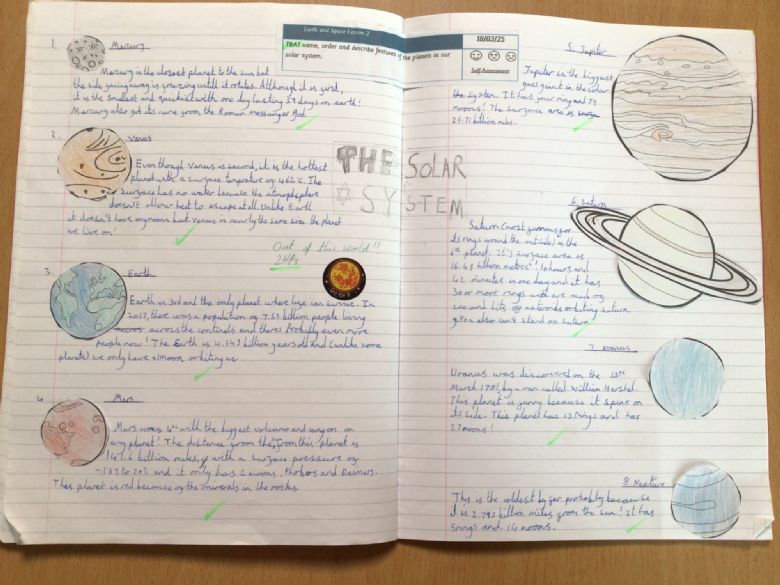 Earth and Space Lesson 2
18/03/25
TBAT name, order and describe features of the planets in our
solar system.
Self Assessment
1. Mercury
Mercury is the closest planet to the sun but
the side facing away is freezing until it rotates. Although it is first,
it is the smallest and quickest with one day lasting 59 days on earth!
Mercury also got its name from the Roman messenger god.
2. Venus
Even though Venus is second, it is the hottest
planet with a surface temprature of 462°c. The
surface has no water because the atmosphere
doesn't allow heat to escape at all. Unlike Earth
it doesn't have any moons but Venus is nearly the same size the planet
we live on!
THE SOLAR
SYSTEM
Out of this world!!
2HPs
3. Earth
Earth is 3rd and the only planet where life can survive. In
2017, there was a population of 7.53 billion people living
across the continets and theres Probably even more
people now! The Earth is 4.543 billion years old and (unlike some
planets) we only have a moon orbiting us.
4. Mars
Mars comes 4th with the biggest volcano and canyon on
any planet! The distance from the sun from this planet is
141.6 billion miles, with a surface pressure of
-153 to 20°c and it only has 2 moons, Phobos and Deimos.
This planet is red because of the minerals in the rocks
5. Jupiter
Jupiter is the biggest
gas giant in the solar
system. It has four rings and 79
moons! The surface area is
23.71 billion miles.
6. Saturn
Saturn (most famous for
its rings around the outside) is the
6th planet. It's surface area is
16.49 billion metres²! 10 hours and
42 minutes is one day and it has
30 or more rings which are made of
ice and bits of asteroids orbiting Saturn.
You also can't stand on Saturn.
7. Uranus
Uranus was discovered on the 13th
March 1781, by a man called William Hershel.
This planet is funny because it spins on
its side. This planet has 13 rings and has
27 moons!
8. Neptune
This is the coldest by far probably because
it is 2.793 billion miles from the sun! It has
5 rings and 14 moons.